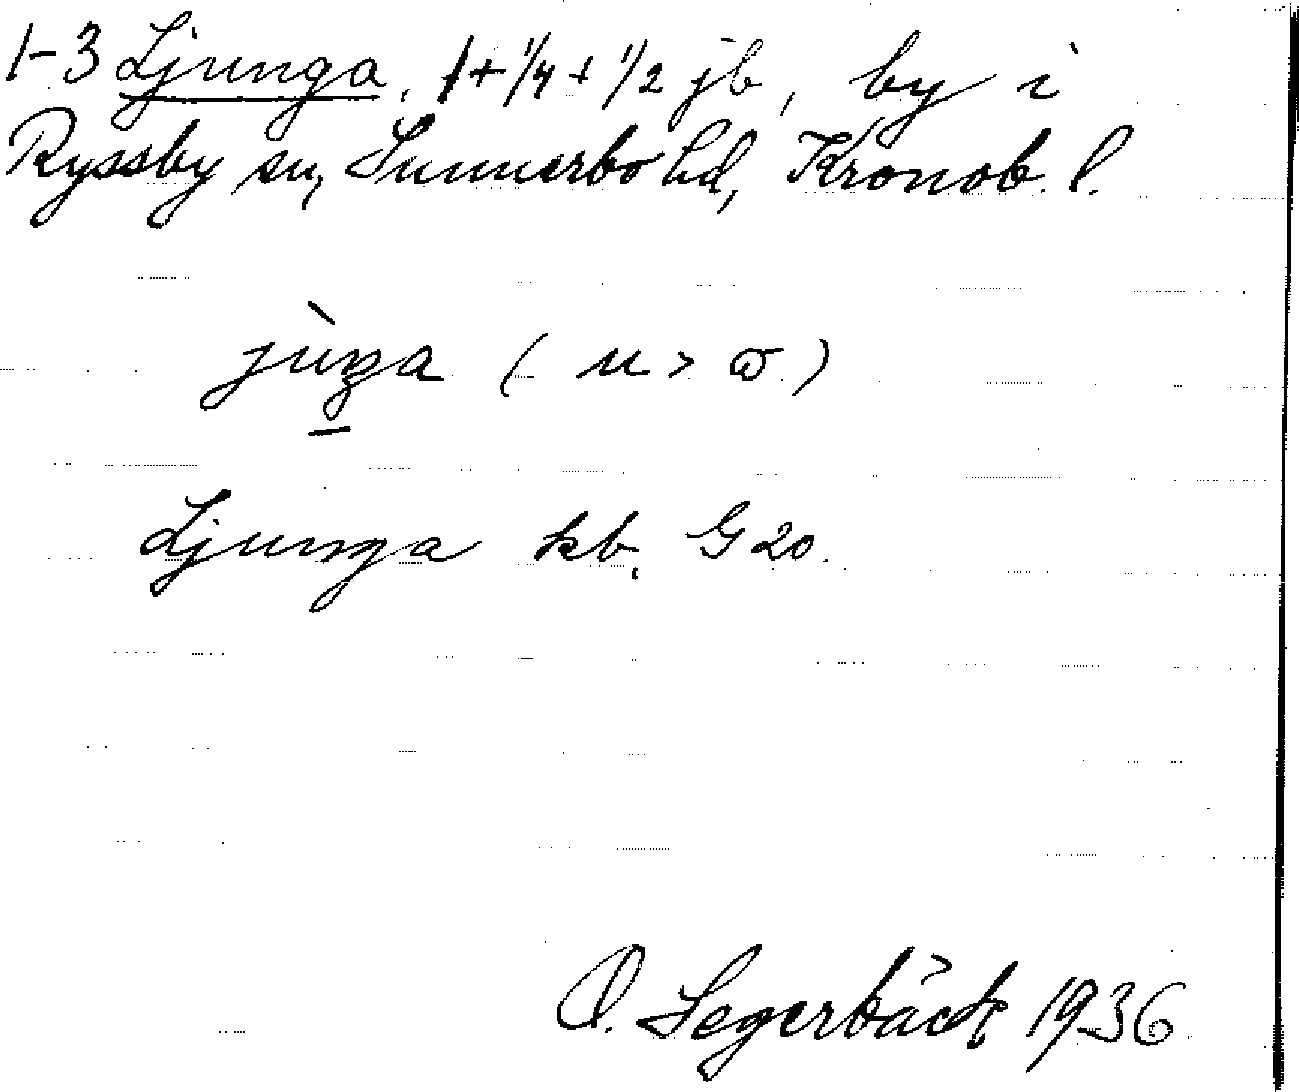 1-3 Ljunga, 1+1/4+1/2 jb, by i
Ryssby sn, Sunnerbo hd, Kronob. l.
jùŋa ( u > ω )
Ljunga kb. G 20.
O. Segerbäck 1936